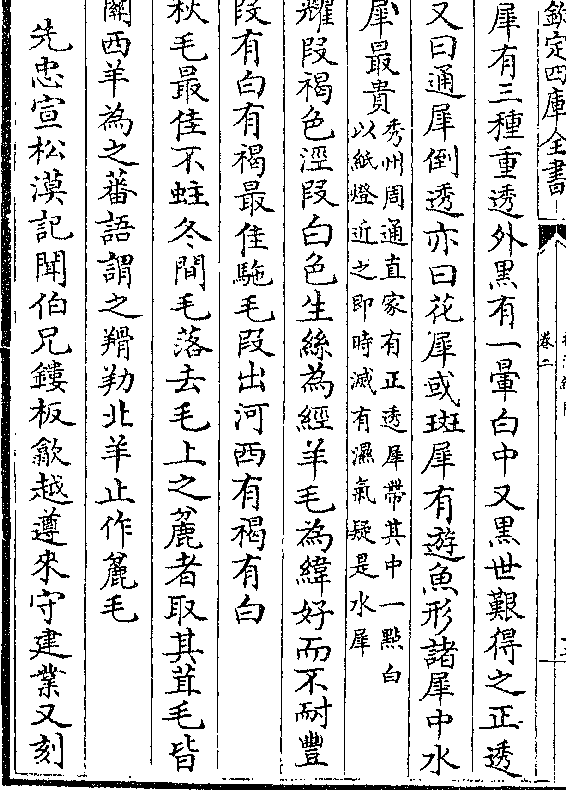 欽定四庫全書
卷二
犀有三種重透外黑有一暈白中又黑世艱得之正透
又曰通犀倒透亦曰花犀或斑犀有遊魚形諸犀中水
犀最貴秀州周通直家有正透犀帶其中一點白
以紙燈近之即時滅有濕氣疑是水犀
耀段褐色涇段白色生絲為經羊毛為緯好而不耐豐
段有白有褐最佳駞毛段出河西有褐有白
秋毛最佳不蛀冬間毛落去毛上之麄者取其茸毛皆
關西羊為之蕃語謂之㺉羊力北羊止作麄毛
先忠宣松漠記聞伯兄鏤板歙越遵來守建業又刻